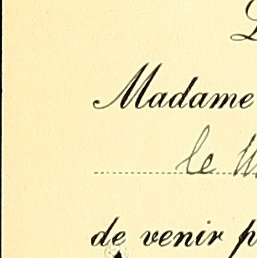 Madame
le
de venir